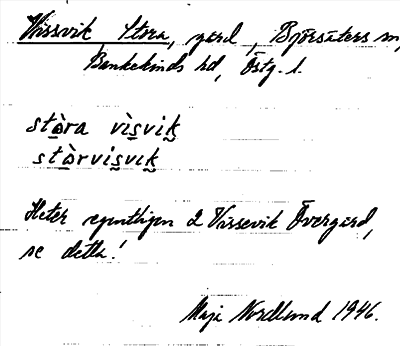 Vissvik Stora, gård, Björsäters sn,
Bankekinds hd, Östg. l.
stòra vìsvik
stòrvisvik
Heter egentligen 2 Vissevik Övergård,
se detta!
Maja Nordlund 1946.